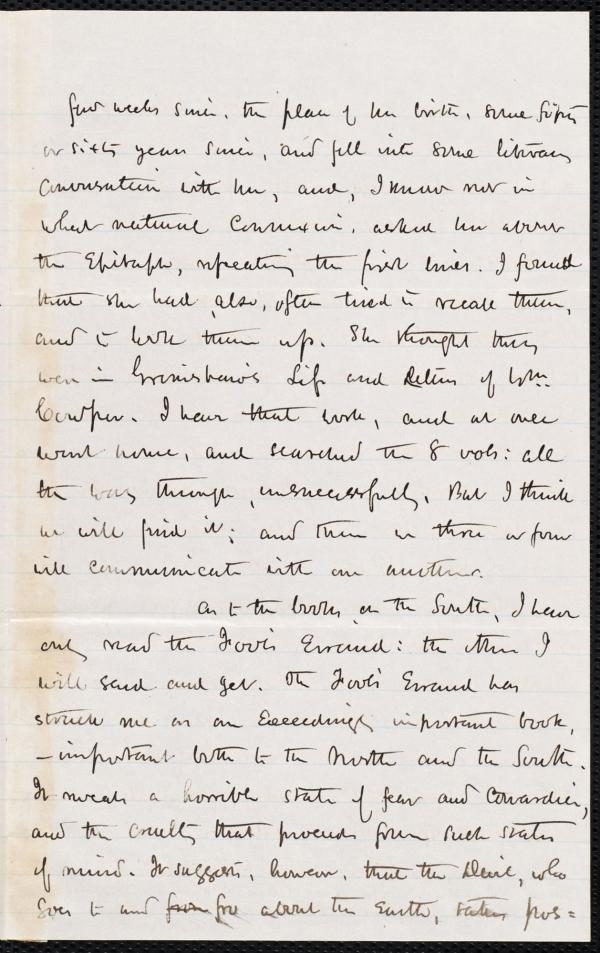 few weeks since, the place of her birth, some fifty
or sixty years since, and fell into some literary
conversation with her, and, I know not in
what natural connexion, asked her about
the Epitaph, repeating the first lines. I found
that she had also, often tried to recall them,
and to look them up. She thought they
were in Grimshawe's Life and Letters of Wm.
Cowper. I have that work, and at once
went home, and searched the 8 vols: all
the way through, unsuccessfully. But I think
we will find it; and then we three or four
will communicate with one another.
As to the books on the South, I have
only read the Fool's Errand: the other I
will send and get. The Fool's Errand has
struck me as an Exceedingly important book,
—important both to the North and the South.
It reveals a horrible state of fear and cowardice,
and the cruelty that proceeds from such states
of mind. It suggests, however, that the Devil, who
goes to and from fro about the Earth, takes pos=